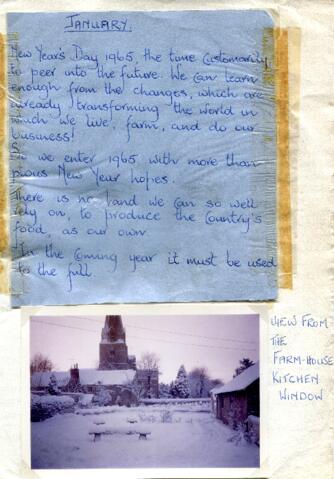 JANUARY.
New Year's Day 1965, the time customarily
to peer into the future. We can learn
enough from the changes, which are
already transforming the world in
which we live, farm, and do our
business!
So we enter 1965 with more than
pious New Year hopes.
There is no land we can so well
rely on, to produce the Country's
food, as our own
In the coming year it must be used
to the full
VIEW FROM
THE
FARM-HOUSE
KITCHEN
WINDOW